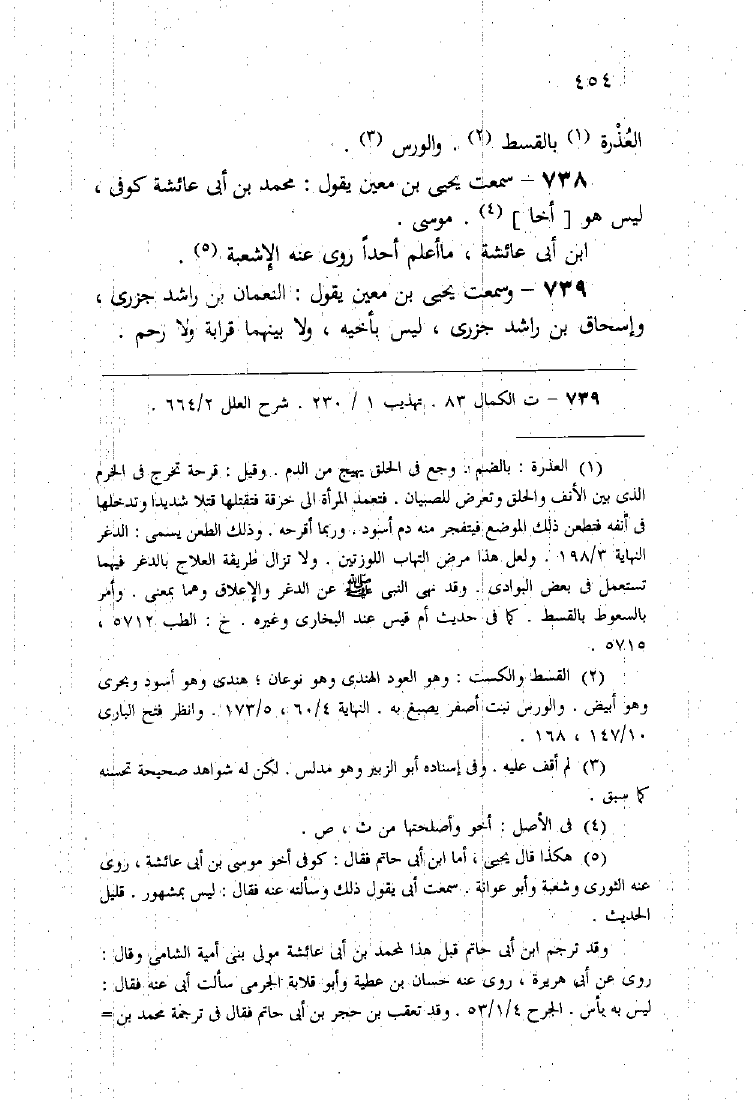 ٤٥٤
العُذْرة (١) بالقسط (٢) . والورس (٣) .
٧٣٨ – سمعت يحيى بن معين يقول : محمد بن أبى عائشة كوفى ،
ليس هو [ أخا ] (٤) . موسى .
ابن أبى عائشة ، ماأعلم أحداً روى عنه الإشعبة (٥) .
٧٣٩ – وسمعت يحيى بن معين يقول : النعمان بن راشد جزرى ،
وإسحاق بن راشد جزرى ، ليس بأخيه ، ولا بينهما قرابة ولا رحم .
٧٣٩ – ت الكمال ٨٣ . تهذيب ١ / ٢٣٠ . شرح العلل ٦٦٤/٢ .
(١) العذرة : بالضم . وجع فى الحلق يهيج من الدم . وقيل : قرحة تخرج فى الخرم
الذى بين الأنف والحلق وتعرض للصبيان . فتعمد المرأة الى خرقة فتفتلها فتلا شديدا وتدخلها
فى أنفه فتطعن ذلك الموضع فيتفجر منه دم أسود . وربما أقرحه . وذلك الطعن يسمى : الدغر
النهاية ١٩٨/٣ . ولعل هذا مرض التهاب اللوزتين . ولا تزال طريقة العلاج بالدغر فيهما
تستعمل فى بعض البوادى . وقد نهى النبى ﷺ عن الدغر والإعلاق وهما بمعنى . وأمر
بالسعوط بالقسط . كما فى حديث أم قيس عند البخارى وغيره . خ : الطب ٥٧١٢ ،
٥٧١٥ .
(٢) القسط والكست : وهو العود الهندى وهو نوعان ؛ هندى وهو أسود وبحرى
وهو أبيض . والورس نبت أصفر يصبغ به . النهاية ٦٠/٤ ، ١٧٣/٥ . وانظر فتح البارى
١٤٧/١٠ ، ١٦٨ .
(٣) لم أقف عليه . وفى إسناده أبو الزبير وهو مدلس . لكن له شواهد صحيحة تحسنه
كما سبق .
(٤) فى الأصل : أخو وأصلحتها من ث ، ص .
(٥) هكذا قال يحيى ، أما ابن أبى حاتم فقال : كوفى أخو موسى بن أبى عائشة ، روى
عنه الثورى وشعبة وأبو عوانة . سمعت أبى يقول ذلك وسألته عنه فقال : ليس بمشهور . قليل
الحديث .
وقد ترجم ابن أبى حاتم قبل هذا لمحمد بن أبى عائشة مولى بنى أمية الشامى وقال :
روى عن أبى هريرة ، روى عنه حسان بن عطية وأبو قلابة الجرمى سألت أبى عنه فقال :
ليس به بأس . الجرح ٥٣/١/٤ . وقد تعقب بن حجر بن أبى حاتم فقال فى ترجمة محمد بن=